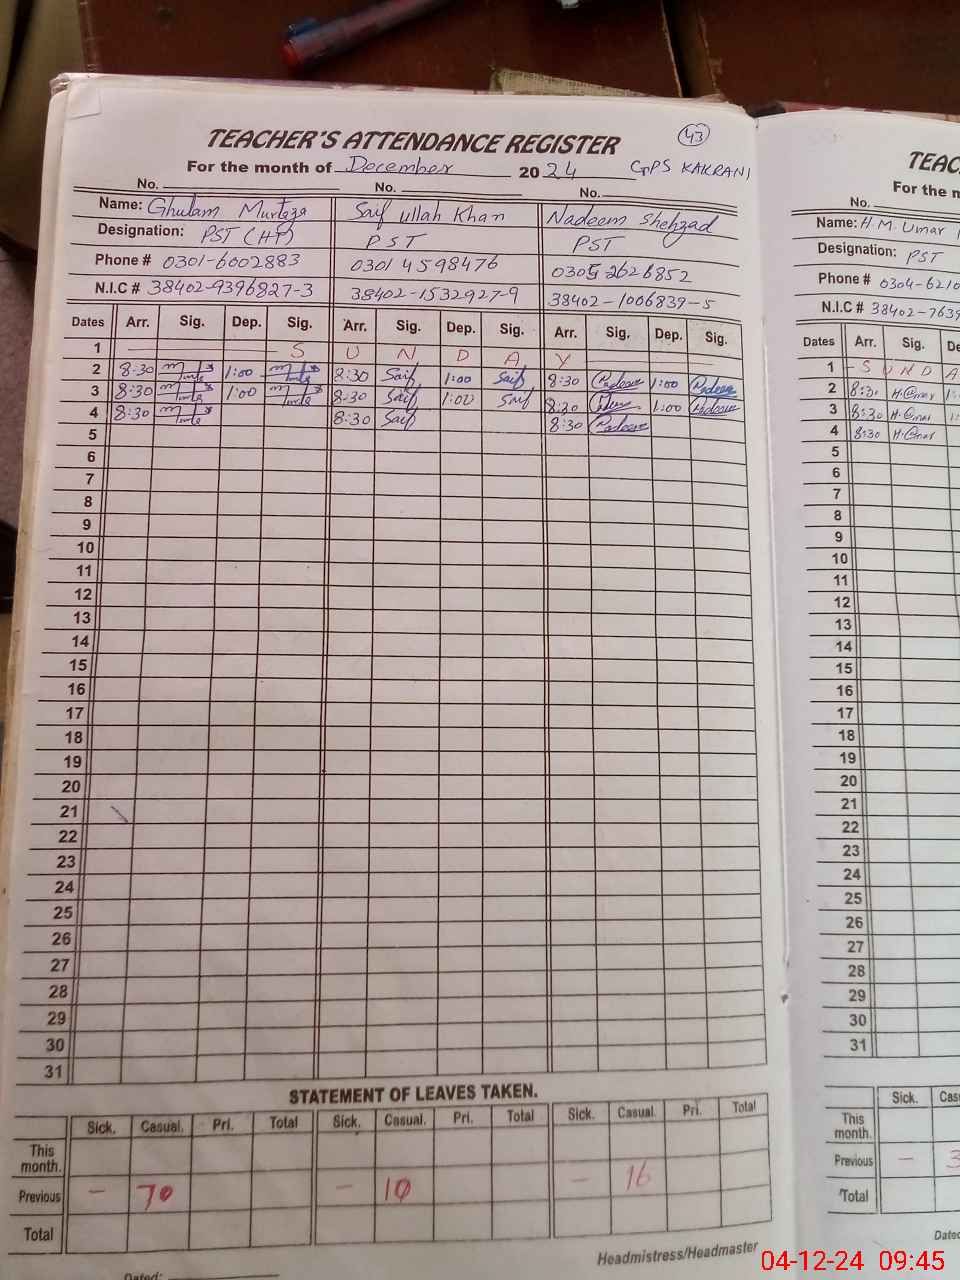 43
TEACHER'S ATTENDANCE REGISTER
For the month of December 2024 GPS KAKRANI
No. No. No.
Name: Ghulam Murtaza Saif ullah Khan Nadeem Shehzad
Designation: PST (HT) PST PST
Phone # 0301-6002883 0301 4598476 0305 2626852
N.I.C # 38402-9396827-3 38402-1532927-9 38402-1006839-5
Dates Arr. Sig. Dep. Sig. Arr. Sig. Dep. Sig. Arr. Sig. Dep. Sig.
1 S U N D A Y
2 8:30 1:00 8:30 Saif 1:00 Saif 8:30 Nadeem 1:00 Nadeem
3 8:30 1:00 8:30 Saif 1:00 Saif 8:30 Nadeem 1:00 Nadeem
4 8:30 8:30 Saif 8:30 Nadeem
5
6
7
8
9
10
11
12
13
14
15
16
17
18
19
20
21
22
23
24
25
26
27
28
29
30
31
STATEMENT OF LEAVES TAKEN.
Sick. Casual. Pri. Total Sick. Casual. Pri. Total Sick. Casual. Pri. Total
This month.
Previous - 10 - 10 - 16
Total
Headmistress/Headmaster
Dated:
TEAC
For the m
No.
Name: H.M. Umar
Designation: PST
Phone # 0304-6210
N.I.C # 38402-7639
Dates Arr. Sig. De
1 - S U N D A
2 8:30 H.Omar 1:
3 8:30 H.Omar 1:
4 8:30 H.Omar
5
6
7
8
9
10
11
12
13
14
15
16
17
18
19
20
21
22
23
24
25
26
27
28
29
30
31
Sick. Cas
This month.
Previous - 3
Total
Dated
04-12-24 09:45